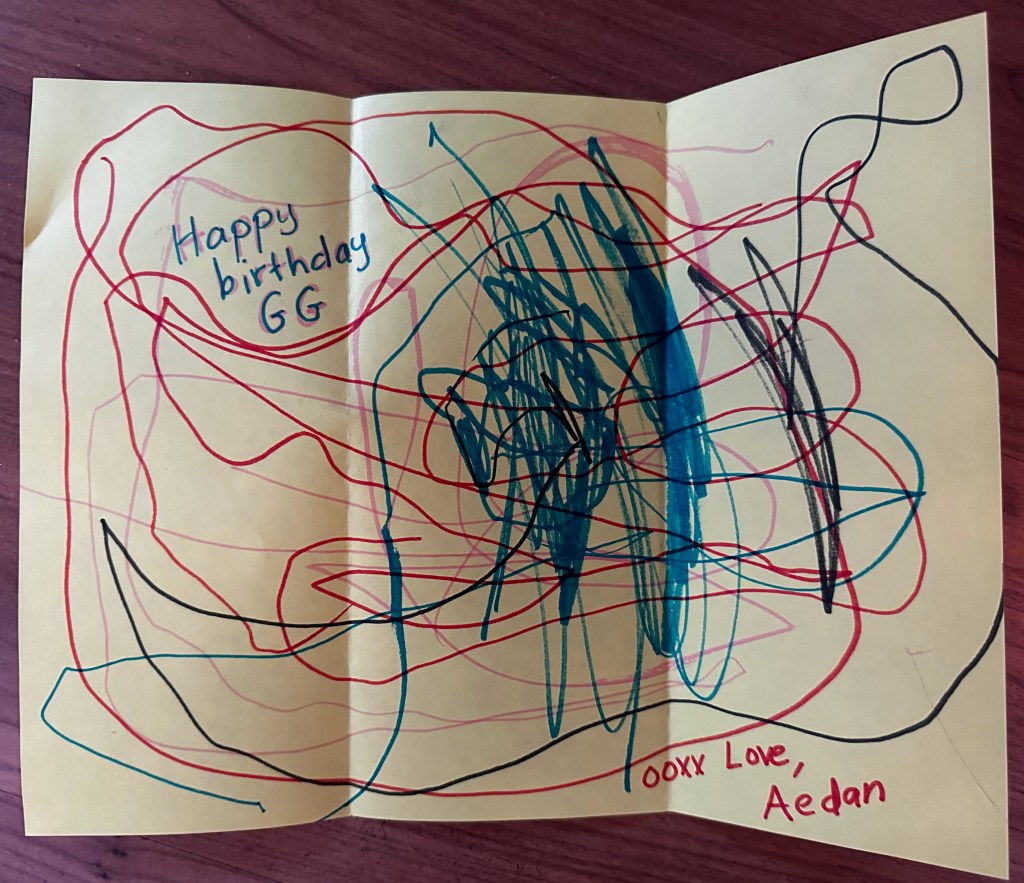 Happy
birthday
GG
ooxx Love,
Aedan